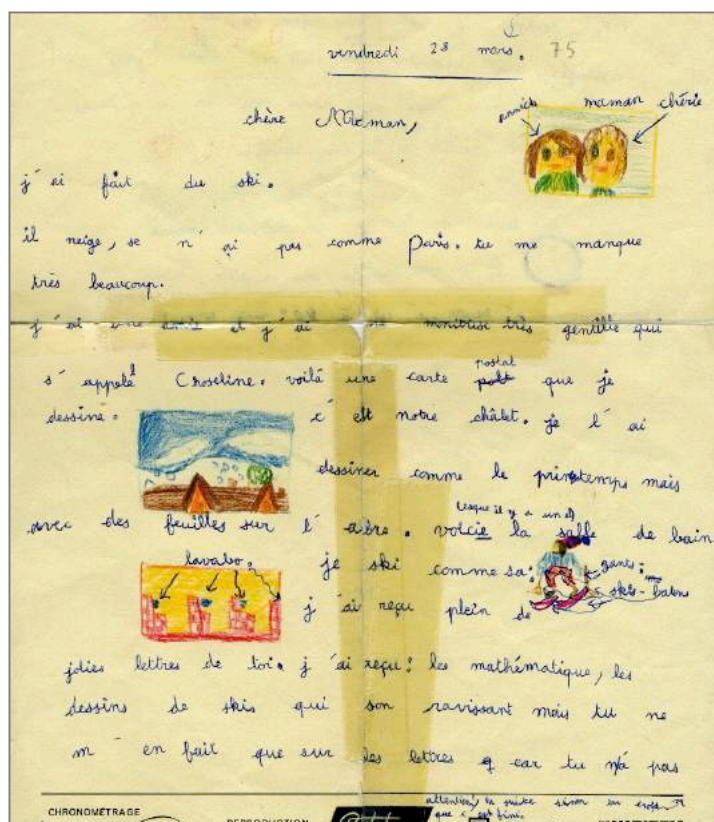 vendredi 28 mars. 75
chère Maman,
annick
maman chérie
j'ai fait du ski.
il neige, se n'ai pas comme Paris. tu me manque
très beaucoup.
j'ai une amie et j'ai une monitrise très gentille qui
s'appele Croseline. voilà une carte postal que je
dessine. c'est notre châlet. je l'ai
dessiner comme le printemps mais
avec des feuilles sur l'abre. voicie la salle de bain
lavabo. je ski comme sa:
gants:
skis-batons
j'ai reçu plein de
jolies lettres de toi. j'ai reçu: les mathématique, les
dessins de skis qui son ravissant mais tu ne
m'en fait que sur les lettres car tu n'à pas
attention, la suite sinon on crois
que c'est fini.
CHRONOMÉTRAGE
REPRODUCTION